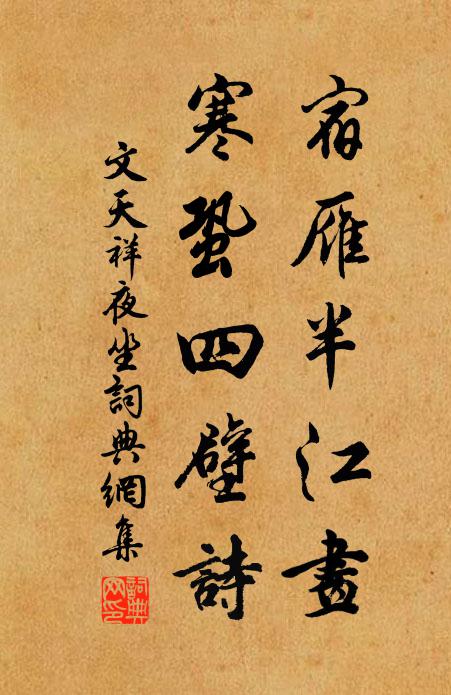 宿雁半江畫
寒蛩四壁詩
文天祥夜坐詞典網集
詞典網印